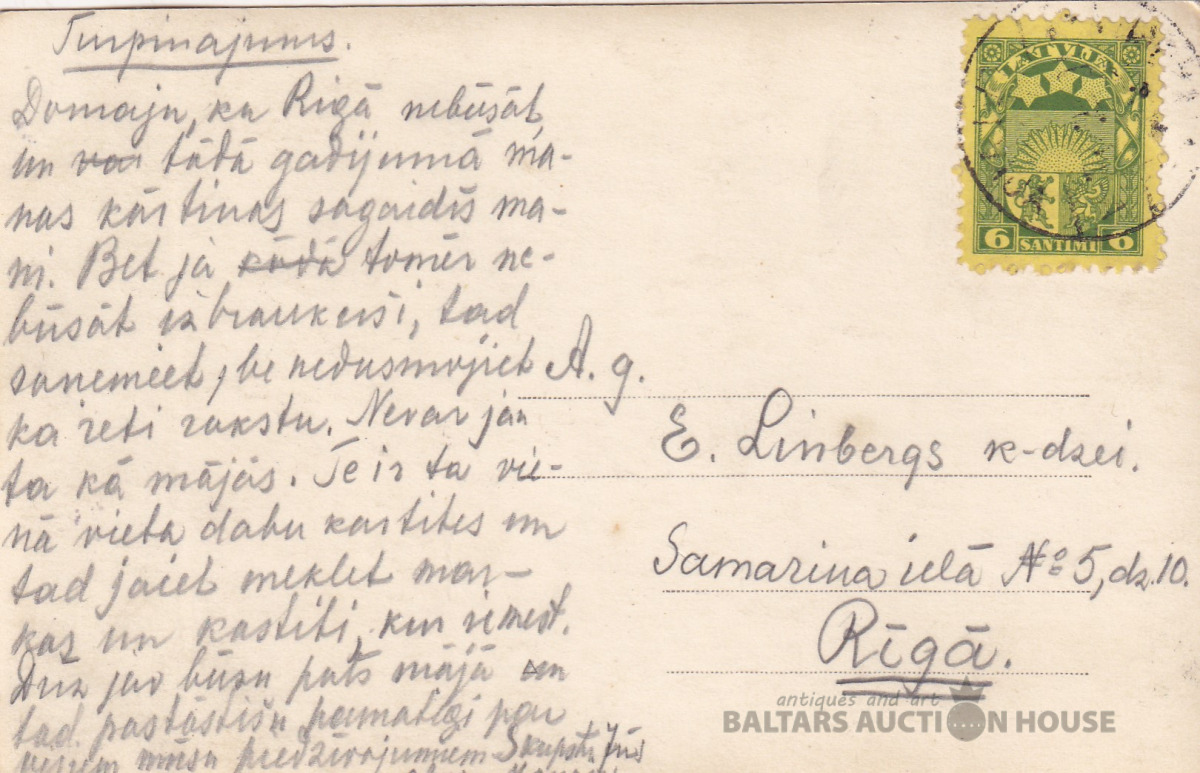 Turpinājums.
Domāju, ka Rīgā nebūsāt,
un var tādā gadijumā ma-
nas kārtiņas sagaidīs ma-
ni. Bet ja kādā tomēr ne-
būsāt izbraukuši, tad
saņemiet, be nedusmojiet
ka reti rakstu. Nevar jau
tā kā mājās. Te ir tā vie-
nā vietā dabū kartītes un
tad jāiet meklēt mar-
kas un kastīti, kur iemest.
Drīz jau būsu pats mājā un
tad pastāstīšu pamatīgi par
visiem mūsu piedzīvojumiem Skūpsta Jūs
LATVIJA
6 SANTIMI 6
A. g.
E. Linbergs k-dzei.
Samariņa ielā № 5, dz. 10.
Rīgā.
antiques and art
BALTARS AUCTION HOUSE